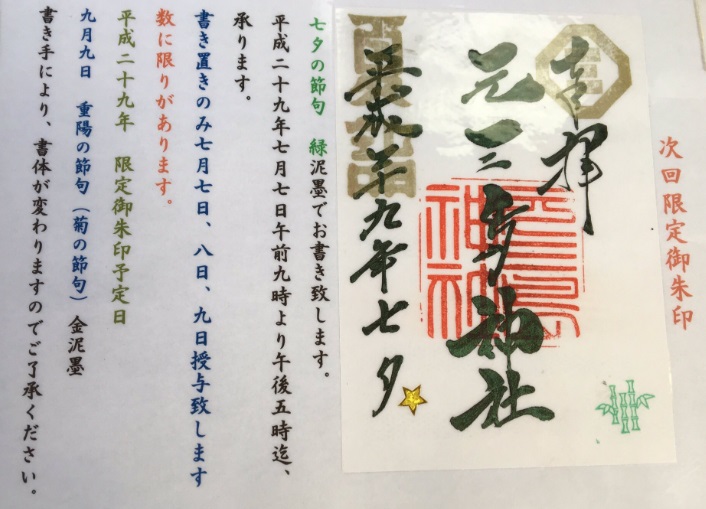 次回限定御朱印
奉拝
元三島神社
平成二十九年七夕
七夕の節句　緑泥墨でお書き致します。
平成二十九年七月七日午前九時より午後五時迄、
承ります。
書き置きのみ七月七日、八日、九日授与致します
数に限りがあります。
平成二十九年　限定御朱印予定日
九月九日　重陽の節句（菊の節句）金泥墨
書き手により、書体が変わりますのでご了承ください。